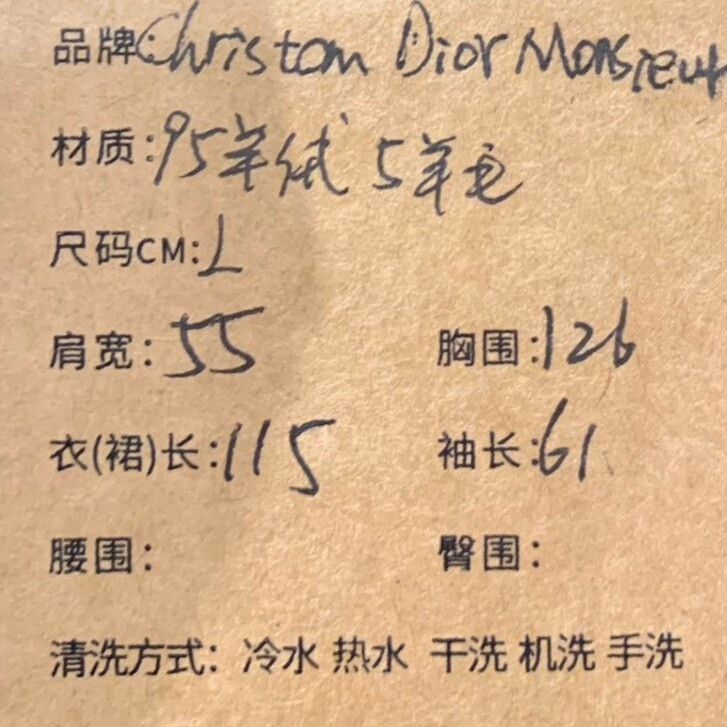 品牌:Christom Dior Monsieur
材质:95羊绒 5羊毛
尺码CM:L
肩宽:55 胸围:126
衣(裙)长:115 袖长:61
腰围: 臀围:
清洗方式:冷水 热水 干洗 机洗 手洗